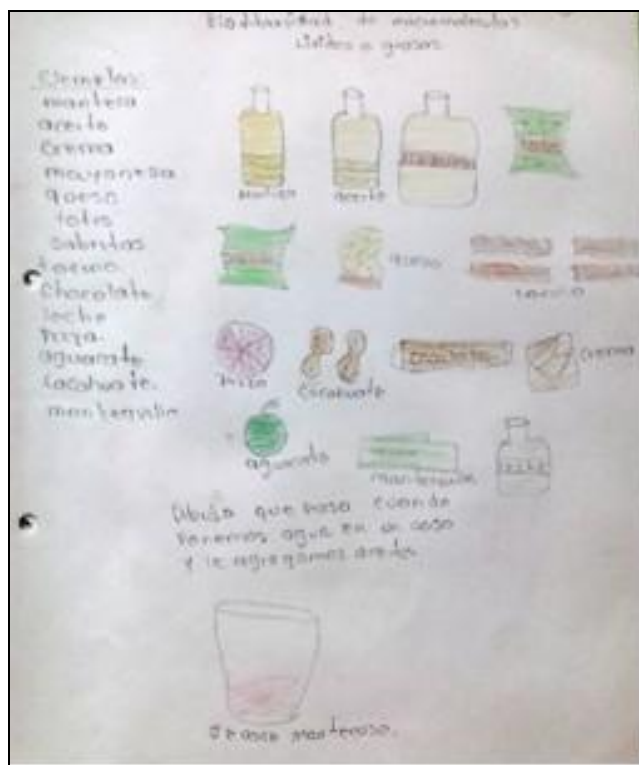 de macromoleculas
Lipidos o grasas
Ejemplos
manteca
aceite
crema
mayonesa
queso
totis
sabritas
tocino
Chocolate
leche
pizza
aguacate
cacahuate
mantequilla
aceite
queso
tocino
pizza
Cacahuate
Chocolate
Crema
aguacate
mantequilla
leche
Dibuja que pasa cuando
ponemos agua en un vaso
y le agregamos aceite
Se pone mantecoso.